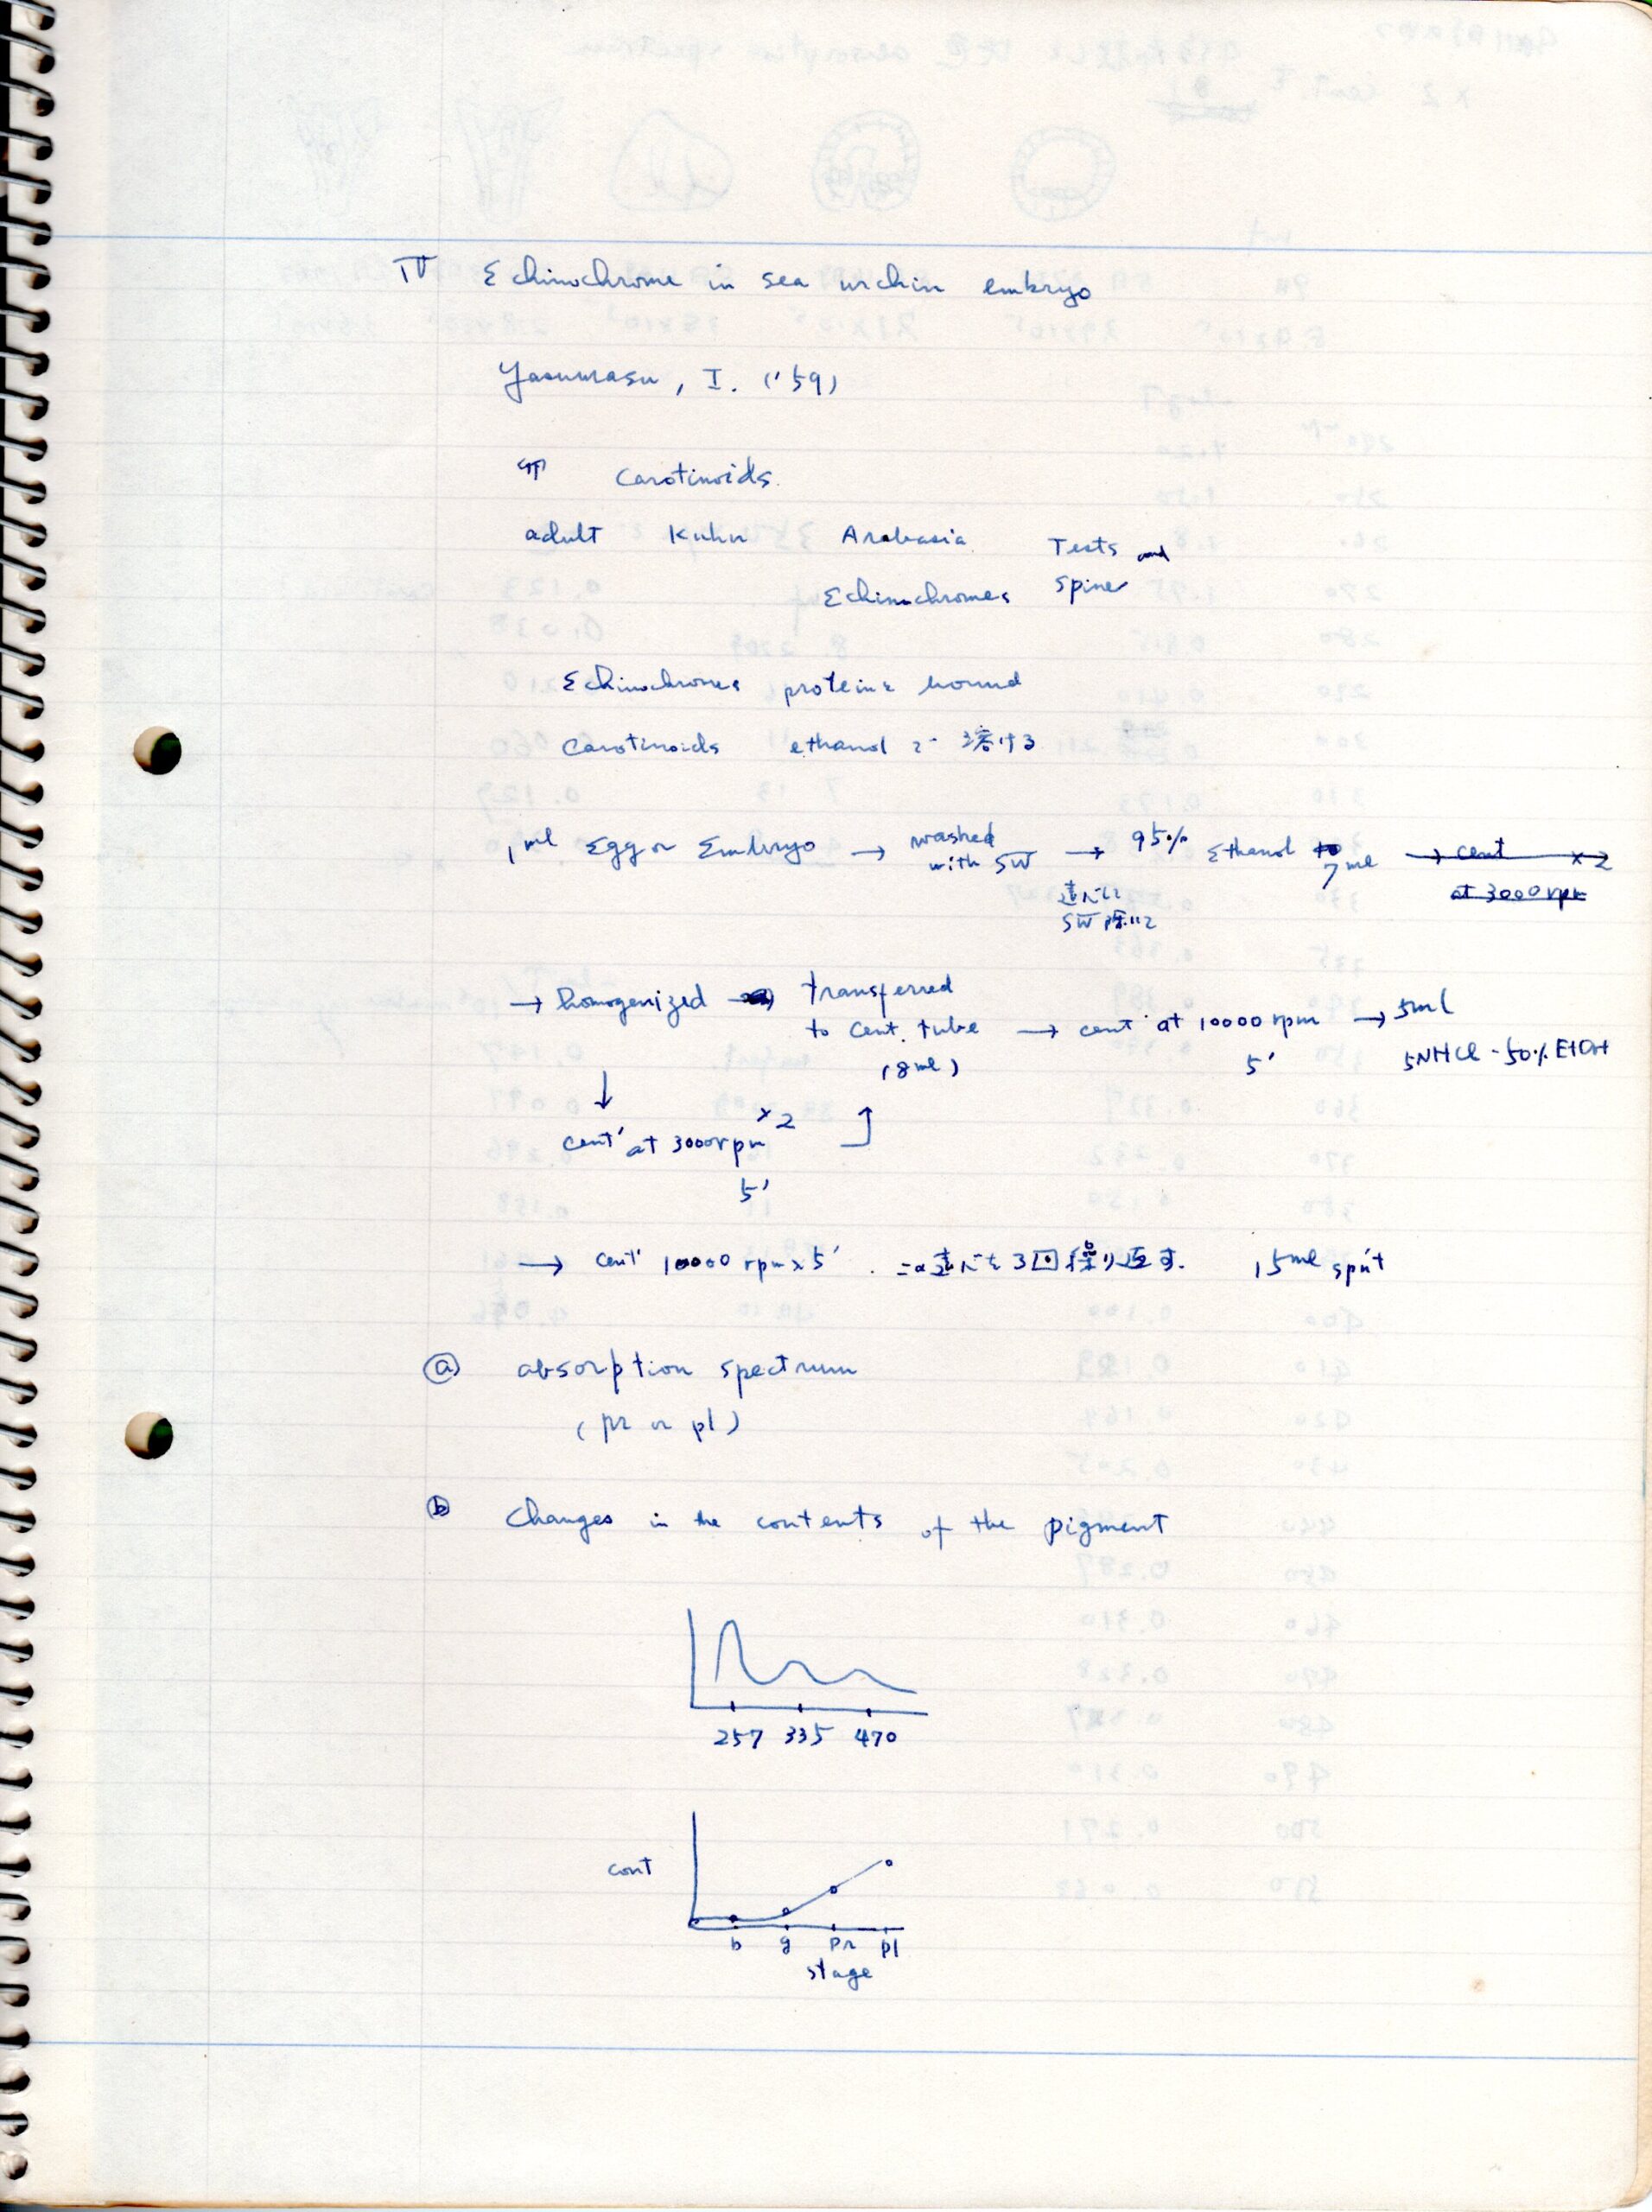 IV Echinochrome in sea urchin embryo
Yasumasu, I. ('59)
卵 Carotinoids
adult Kuhn Arabasia Tests and
Echinochromes spine
Echinochromes proteins bound
Carotinoids ethanol で 溶ける
1 ml Egg or Embryo → washed with SW → 95% Ethanol to 7 ml → cent × 2
at 3000 rpm
SW 除いて
→ homogenized → transferred
to cent. tube → cent' at 10000 rpm → 5ml
(8 ml) 5' 5N HCl - 50% EtOH
↓
cent' at 3000 rpm × 2
5'
→ cent' 10000 rpm × 5' . 3回 繰り返す. 15 ml
ⓐ absorption spectrum
(pr or pl)
ⓑ Changes in the contents of the pigment
257 335 470
cont
b g pr pl
stage